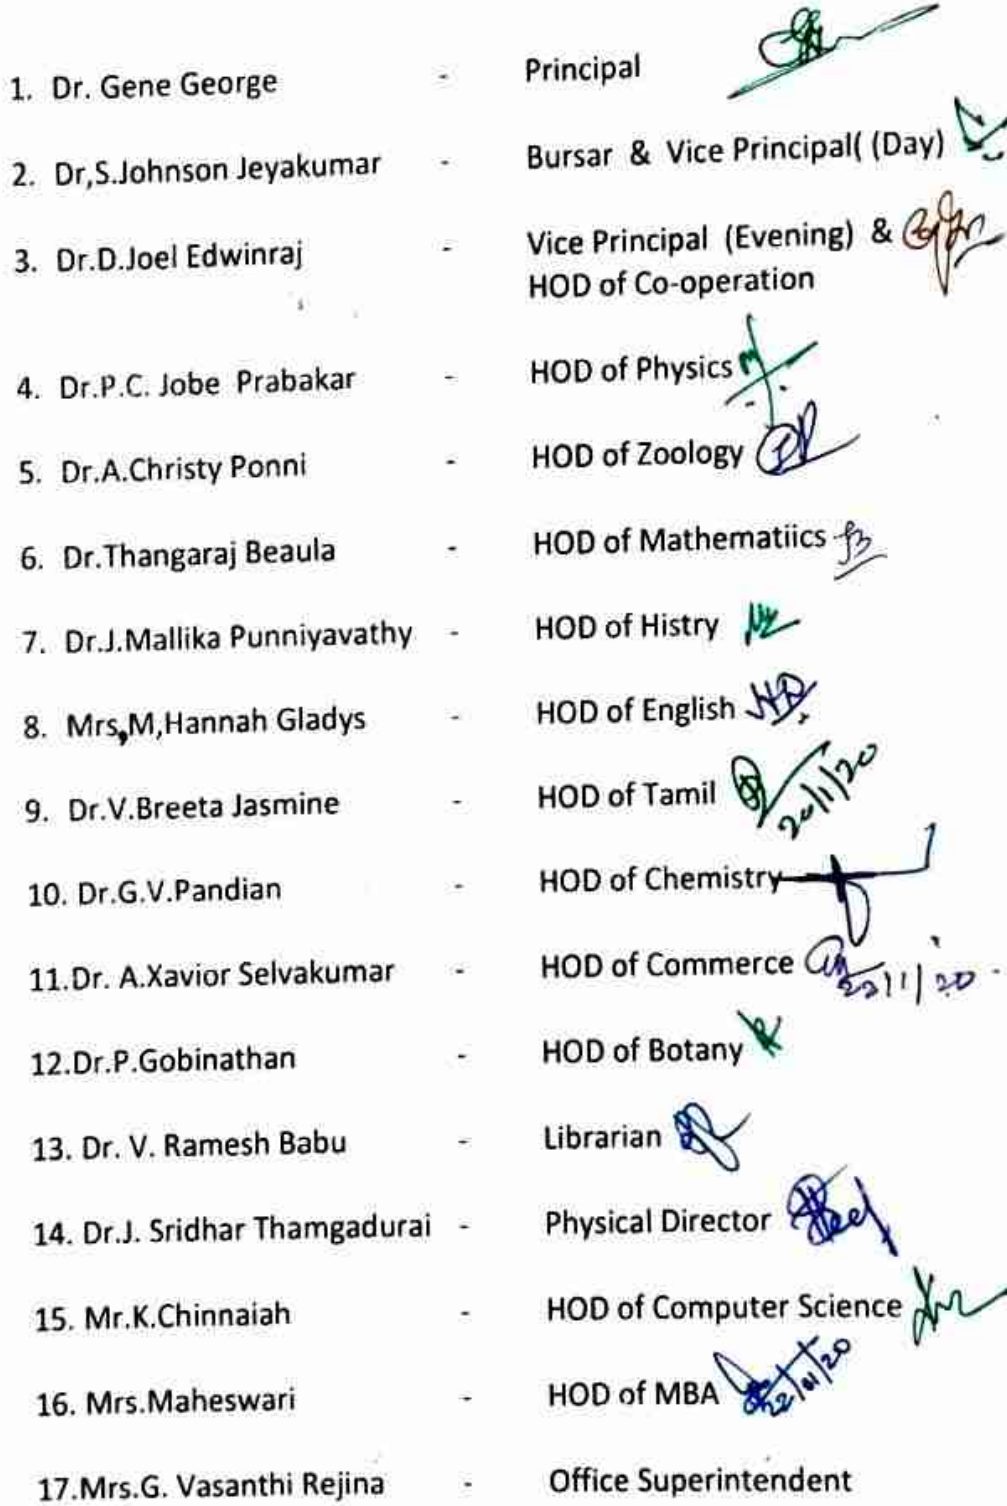 1. Dr. Gene George - Principal
2. Dr,S.Johnson Jeyakumar - Bursar & Vice Principal( (Day)
3. Dr.D.Joel Edwinraj - Vice Principal (Evening) &
HOD of Co-operation
4. Dr.P.C. Jobe Prabakar - HOD of Physics
5. Dr.A.Christy Ponni - HOD of Zoology
6. Dr.Thangaraj Beaula - HOD of Mathematiics
7. Dr.J.Mallika Punniyavathy - HOD of Histry
8. Mrs,M,Hannah Gladys - HOD of English
9. Dr.V.Breeta Jasmine - HOD of Tamil 20/1/20
10. Dr.G.V.Pandian - HOD of Chemistry
11.Dr. A.Xavior Selvakumar - HOD of Commerce
12.Dr.P.Gobinathan - HOD of Botany
13. Dr. V. Ramesh Babu - Librarian
14. Dr.J. Sridhar Thamgadurai - Physical Director
15. Mr.K.Chinnaiah - HOD of Computer Science
16. Mrs.Maheswari - HOD of MBA 22/01/20
17.Mrs.G. Vasanthi Rejina - Office Superintendent